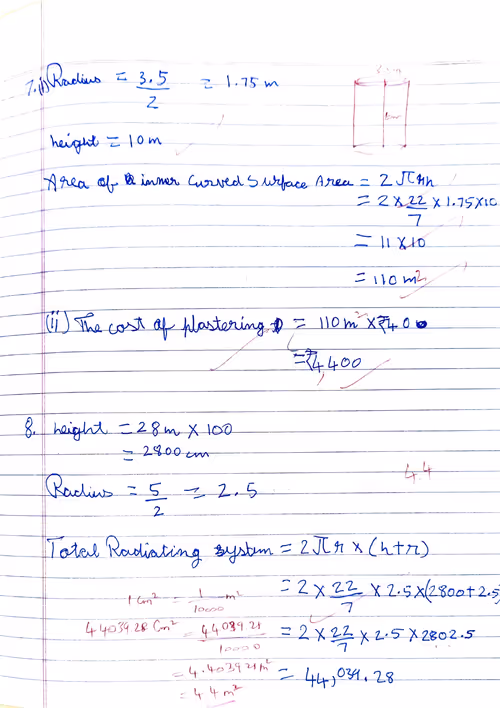 7.(i) Radius = 3.5/2 = 1.75 m
height = 10 m
Area of inner Curved Surface Area = 2πrh
= 2 × 22/7 × 1.75 × 10
= 11 × 10
= 110 m²
(ii) The cost of plastering = 110 m² × ₹40
= ₹4,400
8. height = 28 m × 100
= 2800 cm
4.4
Radius = 5/2 = 2.5
Total Radiating system = 2πr × (h+r)
= 2 × 22/7 × 2.5 × (2800 + 2.5)
1 Cm² = 1/10000 m²
44039.28 Cm² = 44039.28/10000
= 2 × 22/7 × 2.5 × 2802.5
= 4.403928 m²
= 44,039.28
= 4.4 m²